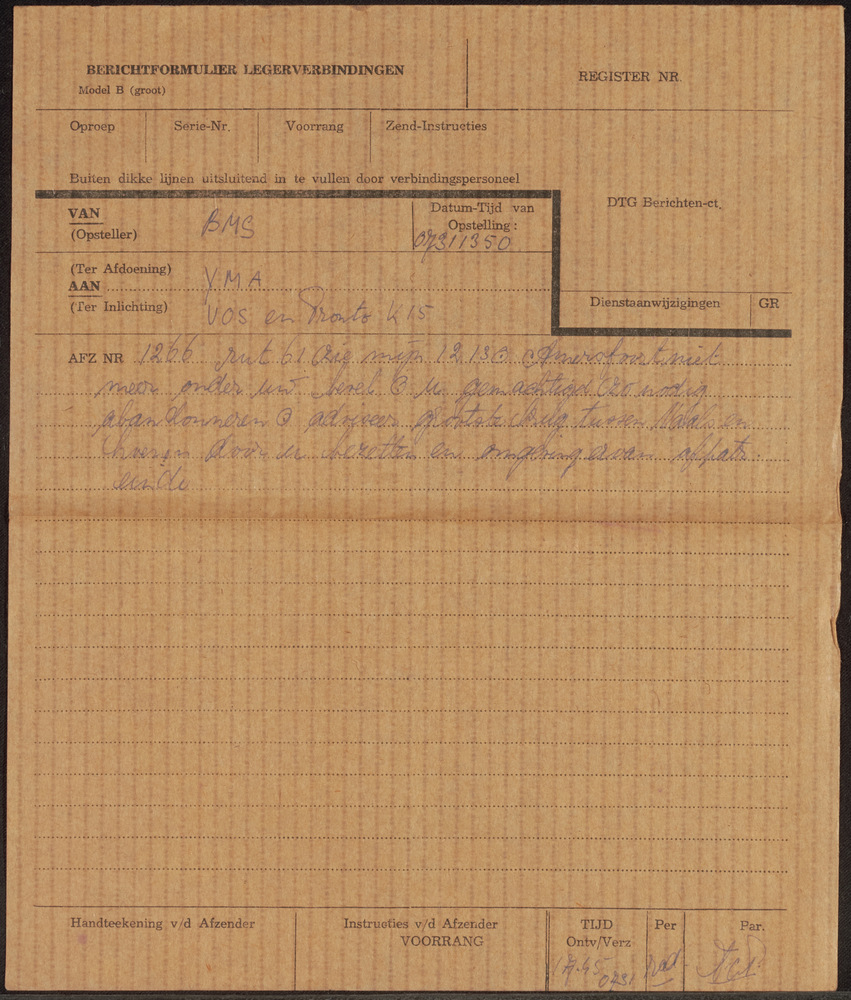 BERICHTFORMULIER LEGERVERBINDINGEN
Model B (groot)
REGISTER NR.
Oproep Serie-Nr. Voorrang Zend-Instructies
Buiten dikke lijnen uitsluitend in te vullen door verbindingspersoneel
VAN
(Opsteller)
BMS
Datum-Tijd van
Opstelling:
07311350
DTG Berichten-ct.
(Ter Afdoening)
AAN
(Ter Inlichting)
VMA
VOS en Pronto K 15
Dienstaanwijzigingen GR
AFZ NR 1266 mijn 12 13 Amersfoort niet
meer onder uw bevel u gemachtigd zo nodig
abandonneren adviseer grootste brug tussen en
door u bezetten en omgeving
einde
Handteekening v/d Afzender
Instructies v/d Afzender
VOORRANG
TIJD
Ontv/Verz
Per
Par.
0731